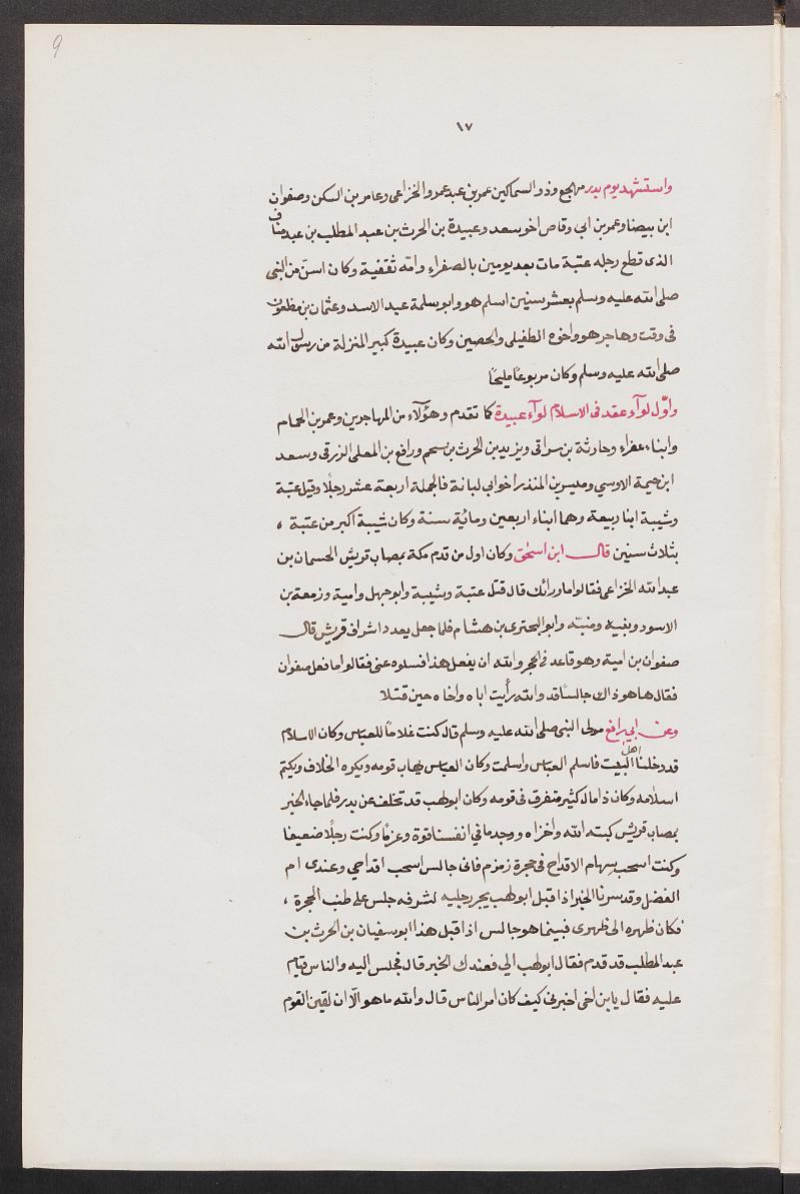 9
١٧
واستشهد يوم بدر مهجع وذو السماكين عمر بن عبد عمرو الخزاعى وعامر بن السكن وصفوان
ابن بيضا وعمر بن ابى وقاص اخو سعد وعبيدة بن الحرث بن عبد المطلب بن عبد مناف
الذى قطع رجله عتبة مات بعد يومين بالصفراء وامه ثقفية وكان اسن من النبى
صلى الله عليه وسلم بعشر سنين اسلم هو وابو سلمة عبد الاسد وعثمان بن مظعون
فى وقت وهاجر هو واخوه الطفيلى والحصين وكان عبيدة كبير المنزلة من رسول الله
صلى الله عليه وسلم وكان مربوعًا مليحًا
واوّل لوآء عقد فى الاسلام لوآء عبيدة كما تقدم وهؤلآء من المهاجرين وعمر بن الحمام
وابناء عفراء وحارثة بن سراقى ويزيد بن الحرث بن سحم ورافع بن المعلى الزرقى وسعد
ابن خيمة الاوسي ومبسر بن المنذر اخوابي لبانة فالجملة اربعة عشر رجلا وقيل عتبة
وشيبة ابنا ربيعة وهما ابناء اربعين ومائة سنة وكان شيبة اكبر من عتبة ،
بثلاث سنين قال ابن اسحق وكان اول من قدم مكة بمصاب قريش الحسمان بن
عبد الله الخزاعى فقالوا ما ورائك قال قتل عتبة وشيبة وابو جهل وامية وزمعة بن
الاسود وبنيه ومنبته وابو البحترى بن هشام فلما جعل يعدد اشراف قريش قال
صفوان بن امية وهو قاعد فى الحجر والله ان يفعل هذا فسلوه عنى فقالوا ما فعل صفوان
فقال ها هو ذاك جالسًا قد والله رأيت اباه واخاه حين قتلا
وعن ابي رافع مولى النبى صلى الله عليه وسلم قال كنت غلامًا للعباس وكان الاسلام
قد دخلنا اهل البيت فاسلم العباس واسلمت وكان العباس يهاب قومه ويكره الخلاف ويكتم
اسلامه وكان ذا مال كثير متفرق فى قومه وكان ابو لهب قد تخلف عن بدر فلما جاء الخبر
بمصاب قريش كبته الله واخزاه ووجدنا في انفسنا قوة وعزمًا وكنت رجلًا ضعيفا
وكنت اسحب سهام الاقداح فى حجرة زمزم فانى جالس اسحب اقداحي وعندى ام
الفضل وقد سرنا الخبر اذا قبل ابو لهب يجر رجليه لشرفه جلس على طنب الحجرة ،
فكان ظهره الى ظهرى فبينما هو جالس اذ اقبل هذا ابو سفيان بن الحرث بن
عبد المطلب قد قدم فقال ابو لهب الي فعندك الخبر قال فجلس اليه والناس قيام
عليه فقال يابن اخى اخبرنى كيف كان امر الناس قال والله ما هو الّا ان لقين القوم